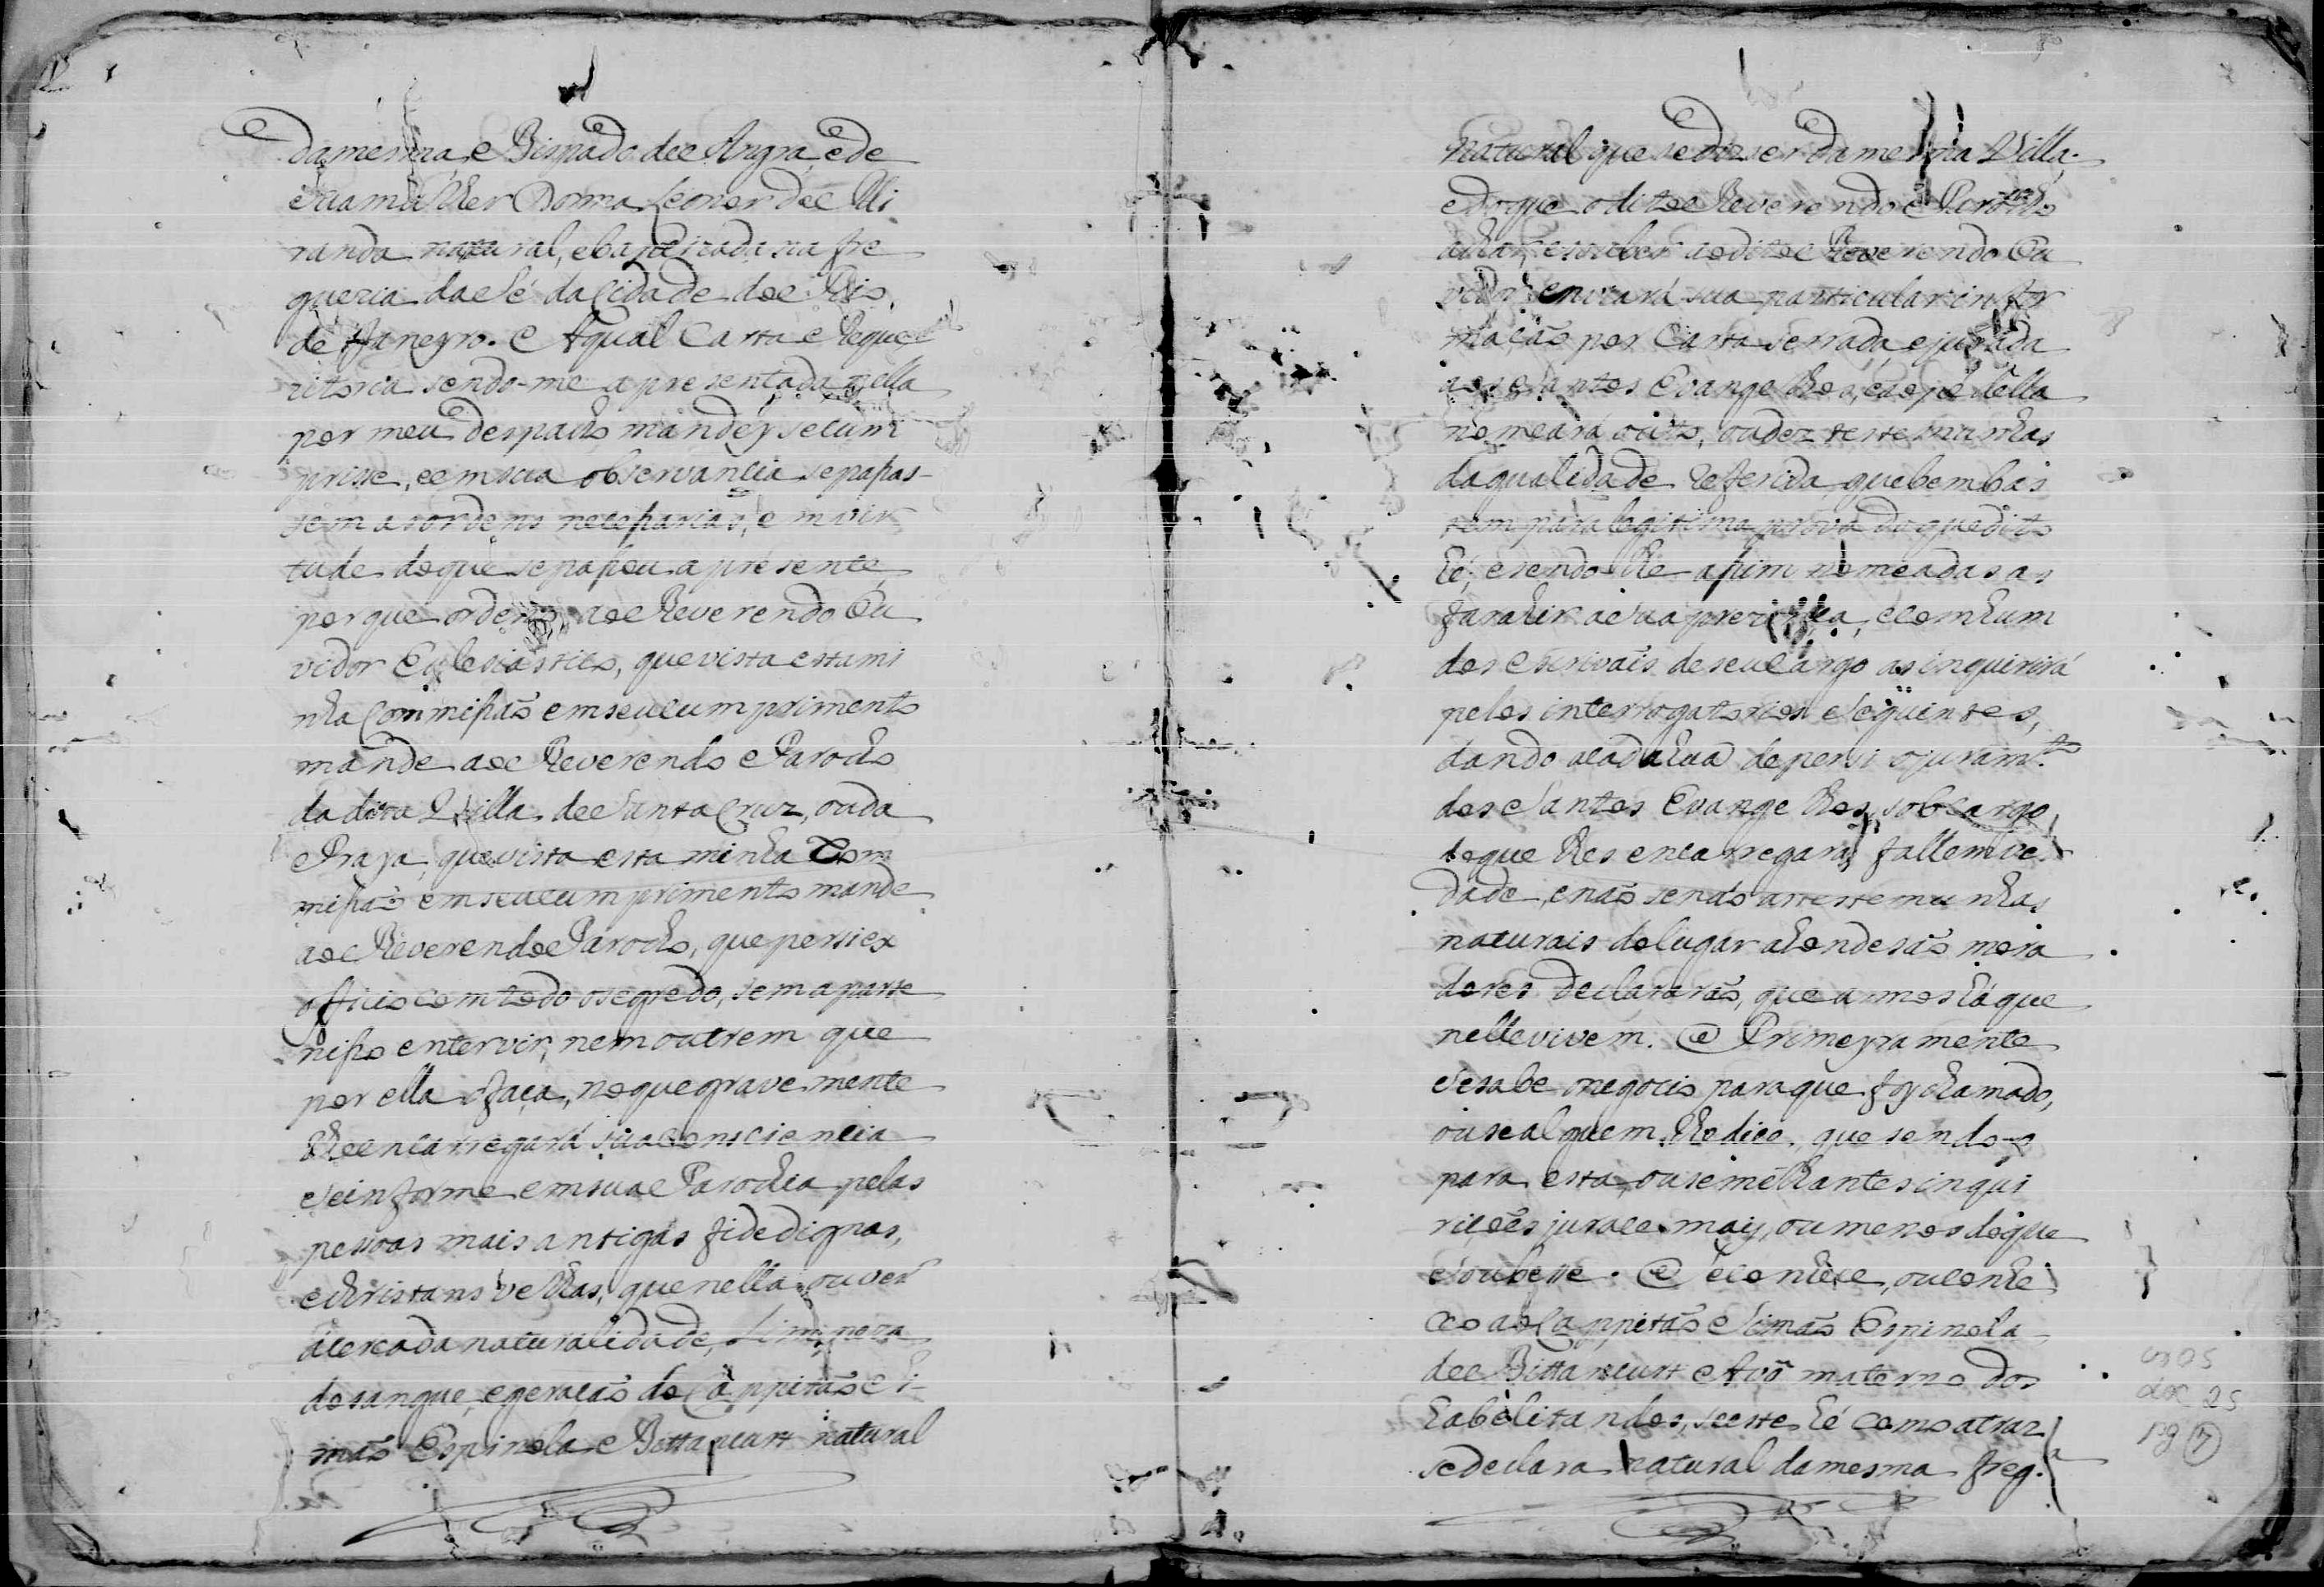 da mesma, e Bispado de Angra, e de
sua mulher Donna Leonor de Mi
randa natural, e bapteizada na fre
guezia da Sé da Cidade do Rio
de Janeyro. A qual Carta e Requi
zitoria sendo-me aprezentada, nella
por meu despacho mandey se cum
prisse, e em sua observancia se passas-
sem as ordens necessarias, e em vir
tude do que se passou a presente
porque ordeno ao Reverendo Ou
vidor Ecclesiastico, que vista esta mi
nha Commissaõ em seu cumprimento
mande ao Reverendo Parocho
da dita Villa de Santa Cruz, ou da
Praya, que vista esta minha Com
missaõ em seu cumprimento mande
ao Reverendo Parocho, que per si ex
officio com todo o segredo, sem a parte
nisso entervir, nem outrem que
por ella o faça, no que gravemente
lhe encarregará sua consciencia
se informe em sua Parochia pelas
pessoas mais antigas fidedignas,
christans velhas, que nella ouver
acerca da naturalidade, limpeza
de sangue, e geraçaõ do Cappitaõ Si-
maõ Espinola Bettancurt natural
natural que se diz ser da mesma Villa.
e do que o dito Reverendo Parocho
achar, e souber ao dito Reverendo Ou
vidor enviará sua particular infor
maçaõ por Carta serrada, e jurada
aos Santos Evangelhos, e ao pé della
nomeara outo, ou dez testemunhas
da qualidade referida, que bem bas
tem para legitima prova do que dito
hé, e sendo-lhe assim nomeadas as
fara vir a sua prezença, e com hum
dos Escrivaĩs de seu cargo as inquirirá
pelos interrogatorios Seguintes,
dando a cada hua de per si o juram.to
dos Santos Evangelhos, sob cargo
do que lhes encarregara fallem ver
dade, e naõ sendo as testemunhas
naturais do lugar a honde saõ mora
dores declararaõ, que annos há que
nelle vivem. @ Primeyramente
se sabe o negocio para que foy chamado,
ou se alguem lhe dice, que sendo-o
para esta, ou semelhantes inqui
riçoẽs jurace mais, ou menos do que
soubesse. @ Se conhece, ou conhe
ceo ao Cappitaõ Simaõ Espinola
de Bittancurt Avô materno dos
habelitandos, se este hé como atraz
se declara natural da mesma freg.a
doc 25
pg 7